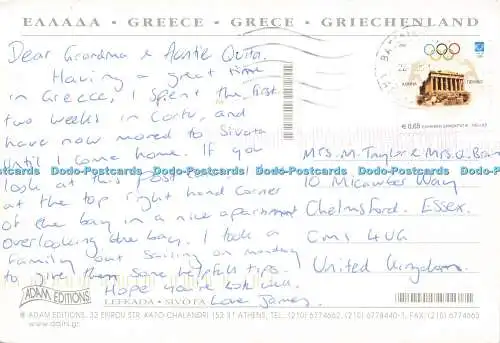 ΕΛΛΑΔΑ • GREECE • GRECE • GRIECHENLAND
Dear Grandma & Auntie Quita.
Having a great time
in Greece, I spent the first
two weeks in Corfu, and
have now moved to Sivota
until I come home. If you
look at this post
at the top right hand corner
of the bay in a nice apartment
overlooking the bay. I took a
family out sailing on monday
to give them some helpful tips.
Hope you're both well.
Love James.
Mrs. M. Taylor & Mrs. Q.
10 Micawber Way
Chelmsford. Essex.
CM1 4UG
United Kingdom.
ΑΘΗΝΑ
€ 0,65
Dodo-Postcards Dodo-Postcards Dodo-Postcards Dodo-Postcards Dodo-Postcards Dodo-Postcards
Dodo-Postcards Dodo-Postcards Dodo-Postcards Dodo-Postcards Dodo-Postcards Dodo-Postcards
ADAM EDITIONS
LEFKADA • SIVOTA
® ADAM EDITIONS, 32 EPIROU STR. 4470 CHALANDRI 152 31 ATHENS, TEL.: (210) 6774662, (210) 6778440-1, FAX: (210) 6774663